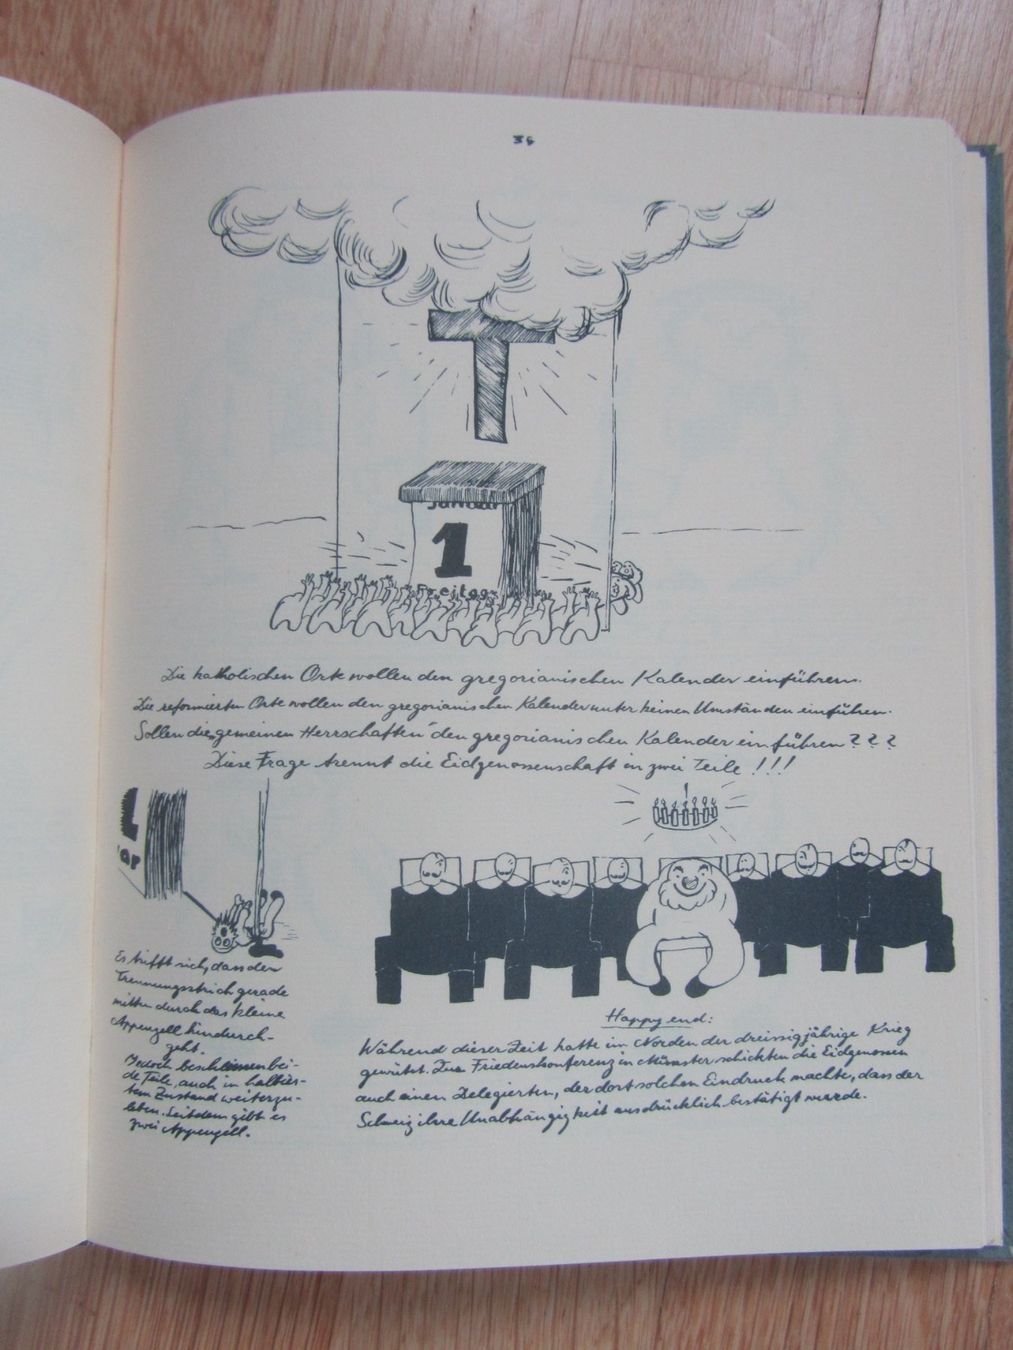 34
Januar
1
Freitag
Die katholischen Orte wollen den gregorianischen Kalender einführen.
Die reformierten Orte wollen den gregorianischen Kalender unter keinen Umständen einführen.
Sollen die „gemeinen Herrschaften" den gregorianischen Kalender einführen???
Diese Frage trennt die Eidgenossenschaft in zwei Teile!!!
1
ar
Es trifft sich, dass der
Trennungsstrich gerade
mitten durch das kleine
Appenzell hindurch-
geht.
Jedoch beschliessen bei-
de Teile, auch in halbier-
tem Zustand weiterzu-
leben. Seitdem gibt es
zwei Appenzell.
Happy end:
Während dieser Zeit hatte im Norden der dreissigjährige Krieg
gewütet. Zur Friedenskonferenz in Münster schickten die Eidgenossen
auch einen Delegierten, der dort solchen Eindruck machte, dass der
Schweiz ihre Unabhängigkeit ausdrücklich bestätigt wurde.